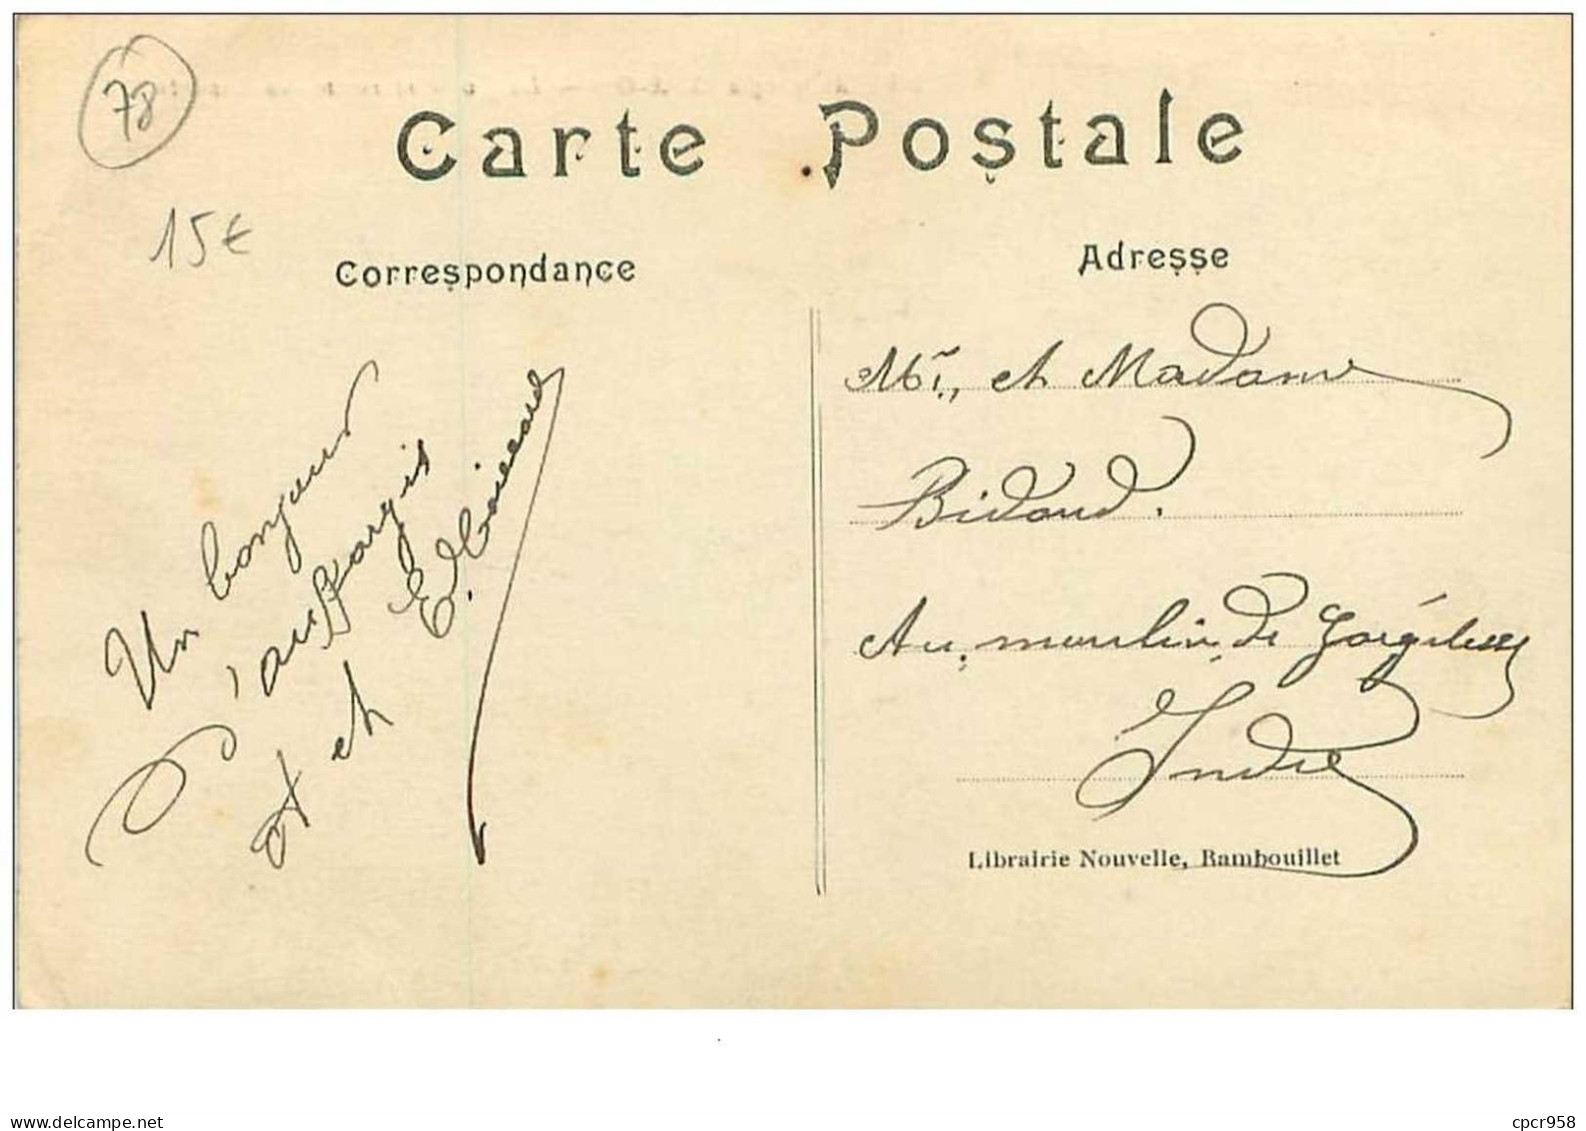 78
15€
Carte Postale
Correspondance
Adresse
Un bonjour
d'auffargis
et
Mr, et Madame
Bidaud.
Au moulin de
Indre
Librairie Nouvelle, Rambouillet
www.delcampe.net
cpcr958